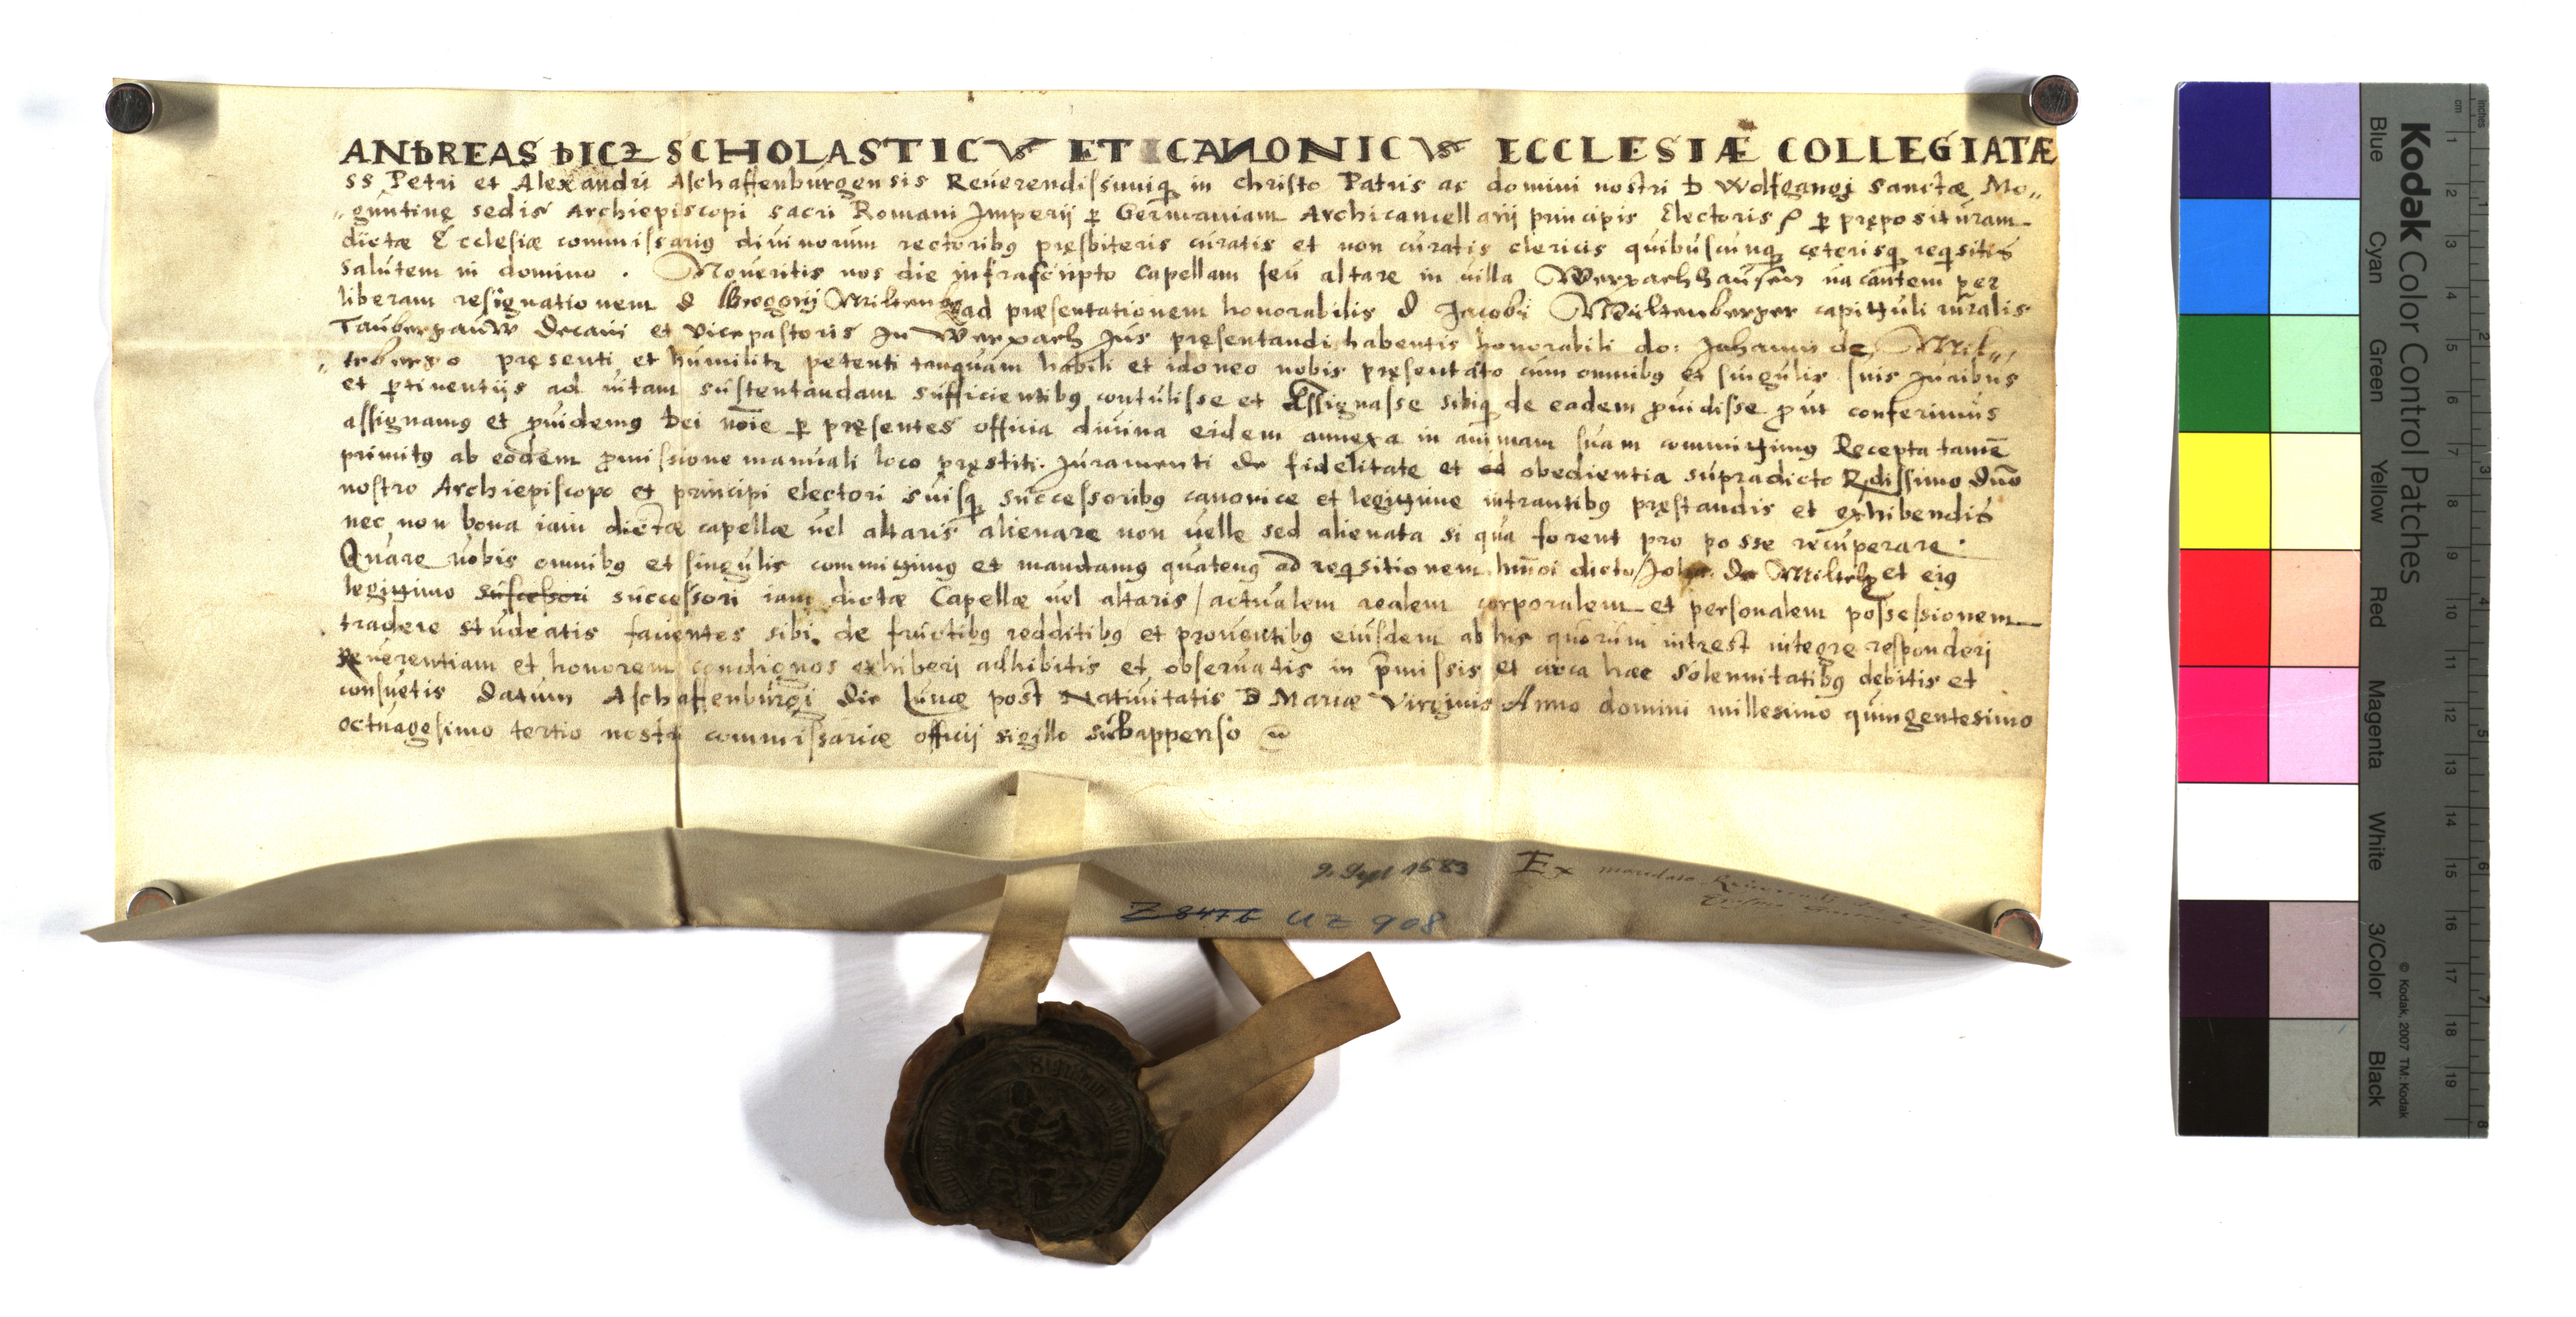 ANDREAS DICZ SCHOLASTICVS ET CANONICVS ECCLESIÆ COLLEGIATÆ
ss Petri et Alexandri Aschaffenburgensis Reuerendissimiq in christo Patris ac domini nostri D Wolfgangi sanctæ Mo„
„guntinę sedis Archiepiscopi sacri Romani Imperij p Germaniam Archicancellarij principis Electoris p pręposituram
dictæ Ecclesiæ commissarius diuinorum rectoribus pręsbiteris curatis et non curatis clericis quibuscunq ceterisq reqisitis
salutem in domino . Noueritis nos die infrascripto capellam seu altare in uilla Werpachhausen uacantem per
liberam resignationem d Gregorij Miltenbg ad præsentationem honorabilis d Jacobi Miltenberger capittuli ruralis
Taubergauw Decani et vicepastoris In Werpach Jus pręsentandi habentis honorabili do: Johanni de Mil„
„tenbergo pręsenti et humilitr petenti tanquam habili et idoneo nobis pręsentato cum omnibus et singulis suis Juribus
et ptinentijs ad uitam sustentandam sufficientibus contulisse et Assignasse sibiq de eadem puidisse put conferimus
assignamus et puidemus Dei noie p pręsentes officia diuina eidem annexa in animam suam committimus Recepta tamē
primitus ab eodem pmissione manuali loco pręstiti Juramenti de fidelitate et ed obedientia supradicto Rdissimo dno
nostro Archiepiscopo et principi electori suisq successoribus canonice et legittime intrantibus pręstandis et exhibendis
nec non bona iam dictæ capellæ uel altaris alienare non uelle sed alienata si qua forent pro posse recuperare .
Quare uobis omnibus et singulis committimus et mandamus quatenus ad reqisitionem hmoi dicto Joha. De Miltebg et eius
legittimo sufcessori successori iam dictæ Capellæ uel altaris / actualem realem corporalem et personalem possessionem
tradere studeatis facientes sibi de fructibus redditibus et prouentibus eiusdem ab his quorum intrest integre responderj
Reuerentiam et honorem condignos exhiberj adhibitis et obseruatis in pmissis et circa hæc solennitatibus debitis et
consuetis Datum Aschaffenburgi die Lunæ post Natiuitatis D Mariæ Virginis Anno domini millesimo quingentesimo
octuagesimo tertio nostri commissariæ officij sigillo subappenso
9. Sept 1583
Ex mandato Reuerendi
Z 847 b UZ 908
Kodak Color Control Patches
Blue Cyan Green Yellow Red Magenta White 3/Color Black
© Kodak, 2007 TM: Kodak
cm 1 2 3 4 5 6 7 8 9 10 11 12 13 14 15 16 17 18 19
inches 1 2 3 4 5 6 7 8